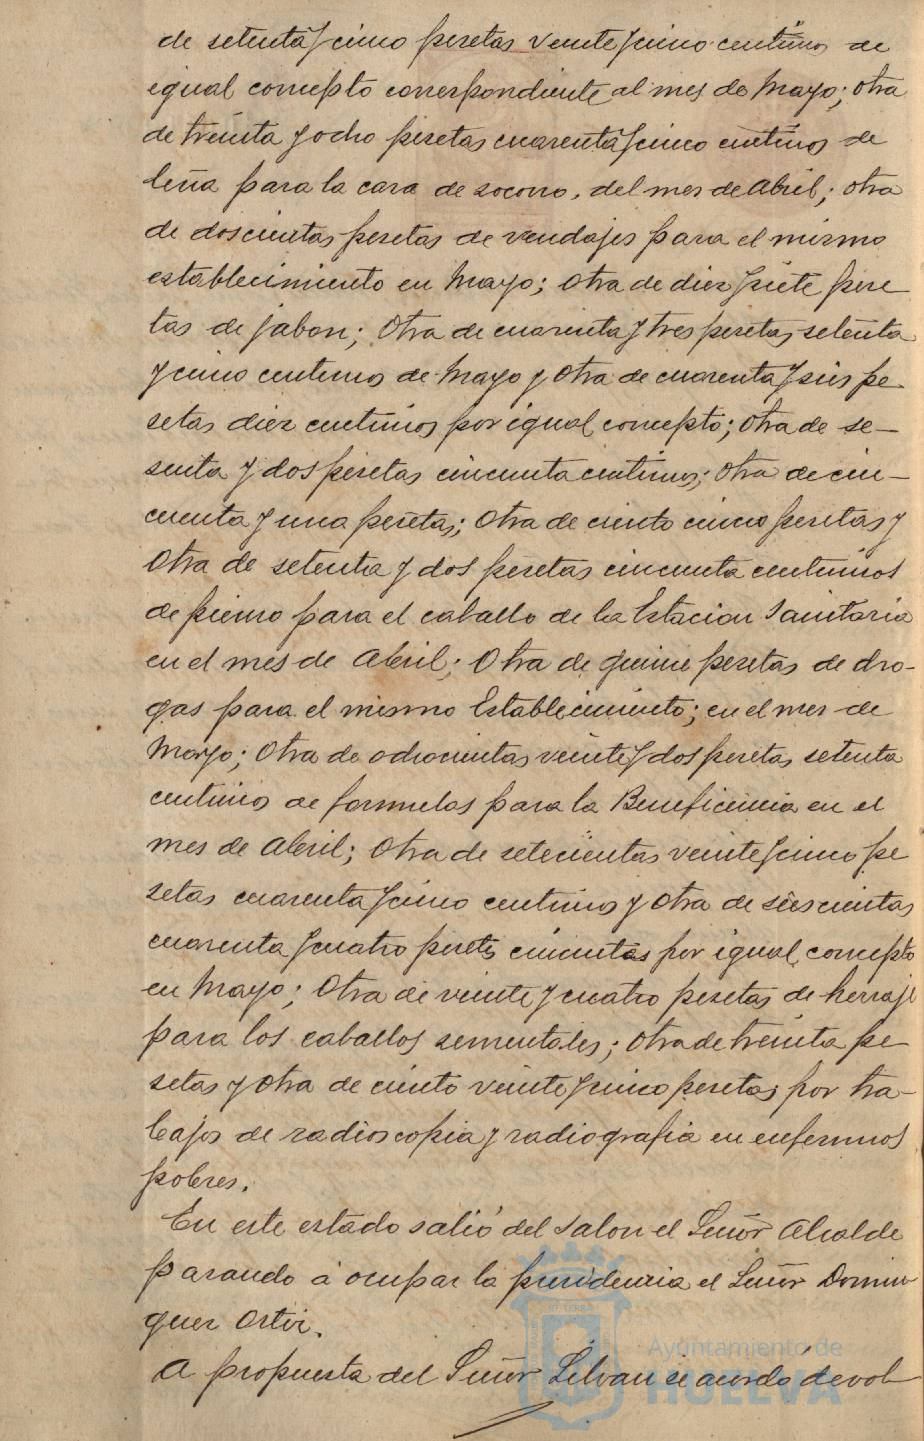 de setenta y cinco pesetas veinte y cinco centimos de
igual concepto correspondiente al mes de Mayo; otra
de treinta y ocho pesetas cuarenta y cinco centimos de
leña para la casa de socorro, del mes de Abril; otra
de doscientas pesetas de vendajes para el mismo
establecimiento en Mayo; otra de diez y siete pese
tas de jabon; otra de cuarenta y tres pesetas setenta
y cinco centimos de Mayo y otra de cuarenta y seis pe-
setas diez centimos por igual concepto; otra de se-
senta y dos pesetas cincuenta centimos; otra de cin-
cuenta y una pesetas; otra de ciento cinco pesetas y
otra de setenta y dos pesetas cincuenta centimos
de pienso para el caballo de la Estacion Sanitaria
en el mes de Abril; Otra de quince pesetas de dro-
gas para el mismo Establecimiento; en el mes de
Mayo; Otra de ochocientas veinte y dos pesetas setenta
centimos de formulas para la Beneficencia en el
mes de Abril; Otra de setecientas veinte y cinco pe
setas cuarenta y cinco centimos y otra de seiscientas
cuarenta y cuatro pesetas cincuenta por igual concepto
en Mayo; Otra de veinte y cuatro pesetas de herraje
para los caballos sementales; otra de treinta pe
setas y otra de ciento veinte y cinco pesetas por tra-
bajos de radioscopia y radiografia en enfermos
pobres.
En este estado salió del salon el Señor Alcalde
pasando á ocupar la presidencia el Señor Domin
guez Ortiz.
A propuesta del Señor Silvan se acordó devol
Ayuntamiento de
HUELVA